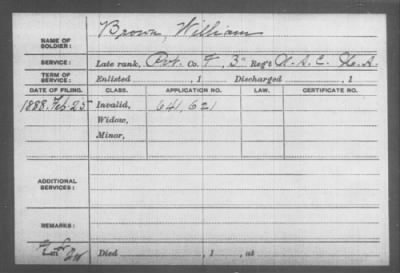 NAME OF SOLDIER: Brown, William
SERVICE: Late rank, Pvt. Co. F, 3" Reg't U.S.C. He.A.
TERM OF SERVICE: Enlisted , 1 Discharged , 1
DATE OF FILING. CLASS. APPLICATION NO. LAW. CERTIFICATE NO.
1888. Feb 25 Invalid, 641,621
Widow,
Minor,
ADDITIONAL SERVICES:
REMARKS:
Died , 1 , at